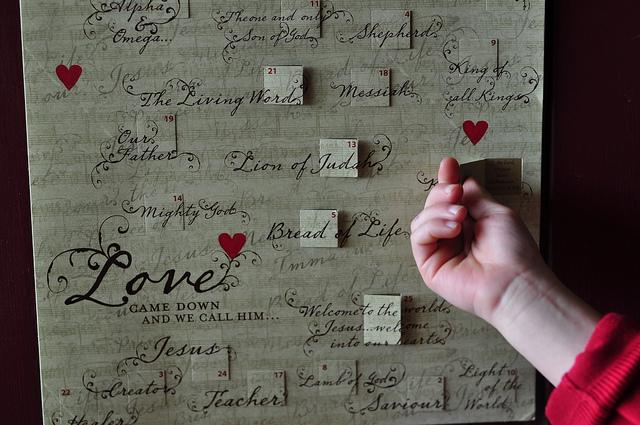 Alpha
&
Omega...
11
Theone and only
Son of God
4
Shepherd
9
King of
all Kings
21
The Living Word
18
Messiah
19
Our
Father
13
Lion of Judah
14
Mighty God
5
Bread of Life
Love
CAME DOWN
AND WE CALL HIM...
25
Welcome to the world
Jesus...welcome
into our hearts.
Jesus
22
3
Creator
24
Teacher
17
8
Lamb of God
2
Saviour
10
Light
of the
World
Healer